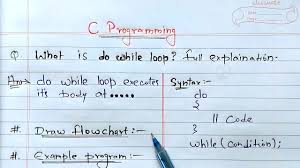 C Programming
Q. What is do while loop? full explaination.
Ans→ do while loop executes
its body at.....
Syntax:-
do
{
// Code
}
while(condition);
#. Draw flowchart:-
#. Example program:-